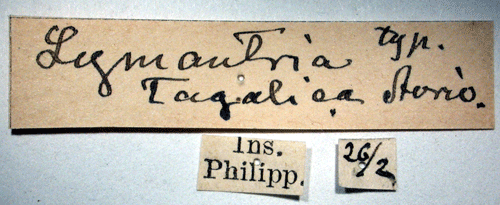 Lymantria typ.
Tagalica
Ins.
Philipp.
26/2